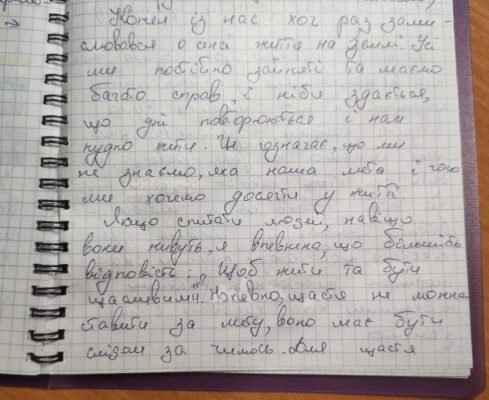 Кожен із нас хоч раз зами-
слювався о сенсі життя на землі. Усі
ми постійно зайняті та маємо
багато справ і ніби здається,
що дні повторюються і нам
нудно жити. Це означає, що ми
не знаємо, яка наша мета і чого
ми хочемо досягти у житті
Якщо спитати людей, навіщо
вони живуть, я впевнена, що більшість
відповість: „Щоб жити та бути
щасливими". Напевно, щастя не можна
ставити за мету, воно має бути
слідом за чимось. Для щастя